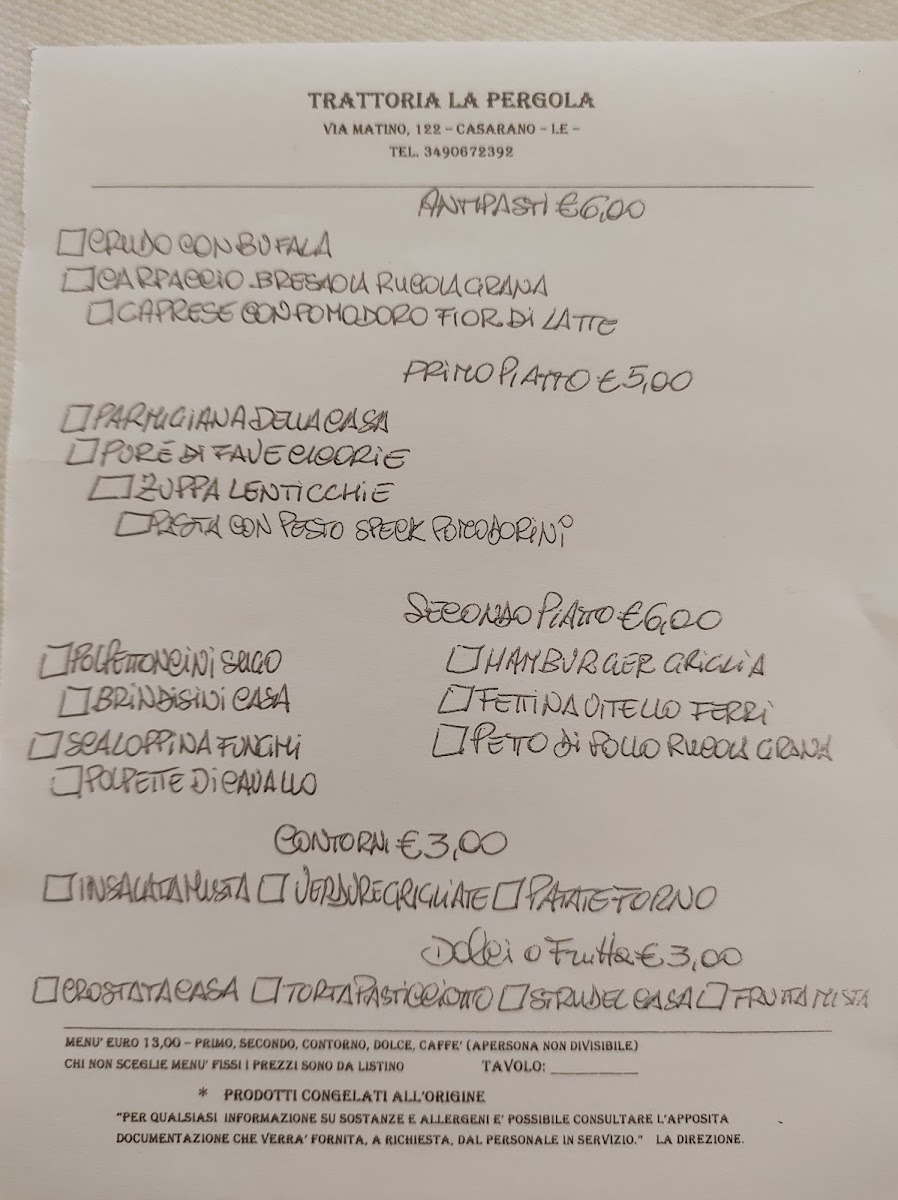 TRATTORIA LA PERGOLA
VIA MATINO, 122 – CASARANO – LE –
TEL. 3490672392
ANTIPASTI € 6,00
CRUDO CON BUFALA
CARPACCIO - BRESAOLA RUCOLA GRANA
CAPRESE CON POMODORO FIOR DI LATTE
PRIMO PIATTO € 5,00
PARMIGIANA DELLA CASA
PURÉ DI FAVE CICORIE
ZUPPA LENTICCHIE
PASTA CON PESTO SPECK POMODORINI
SECONDO PIATTO € 6,00
POLPETTONCINI SUGO
HAMBURGER GRIGLIA
BRINDISINI CASA
FETTINA VITELLO FERRI
SCALOPPINA FUNGHI
PETTO DI POLLO RUCOLA GRANA
POLPETTE DI CAVALLO
CONTORNI € 3,00
INSALATA MISTA VERDURE GRIGLIATE PATATE FORNO
Dolci o Frutta € 3,00
CROSTATA CASA TORTA PASTICCIOTTO STRUDEL CASA FRUTTA MISTA
MENU' EURO 13,00 – PRIMO, SECONDO, CONTORNO, DOLCE, CAFFE' (APERSONA NON DIVISIBILE)
CHI NON SCEGLIE MENU' FISSI I PREZZI SONO DA LISTINO TAVOLO: __________
* PRODOTTI CONGELATI ALL'ORIGINE
"PER QUALSIASI INFORMAZIONE SU SOSTANZE E ALLERGENI E' POSSIBILE CONSULTARE L'APPOSITA
DOCUMENTAZIONE CHE VERRA' FORNITA, A RICHIESTA, DAL PERSONALE IN SERVIZIO." LA DIREZIONE.